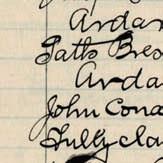 Ardar
Patts Bres
Arda
John Cona
Fully Cla